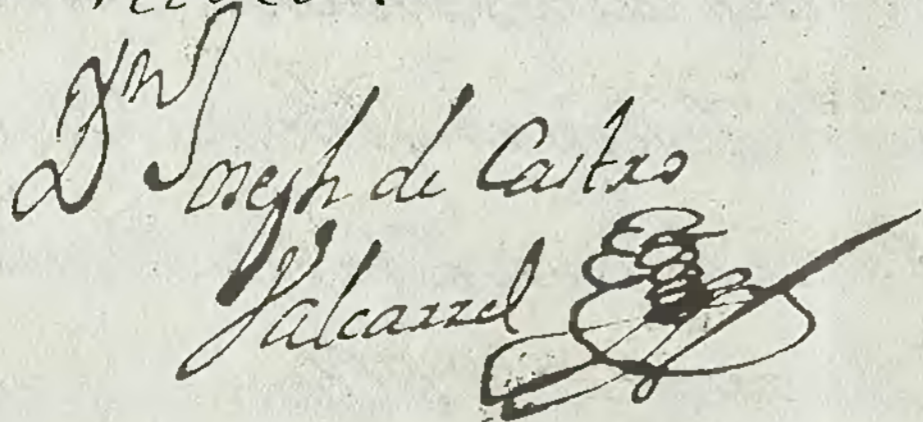 Dn Joseph de Castro
Valcarzel